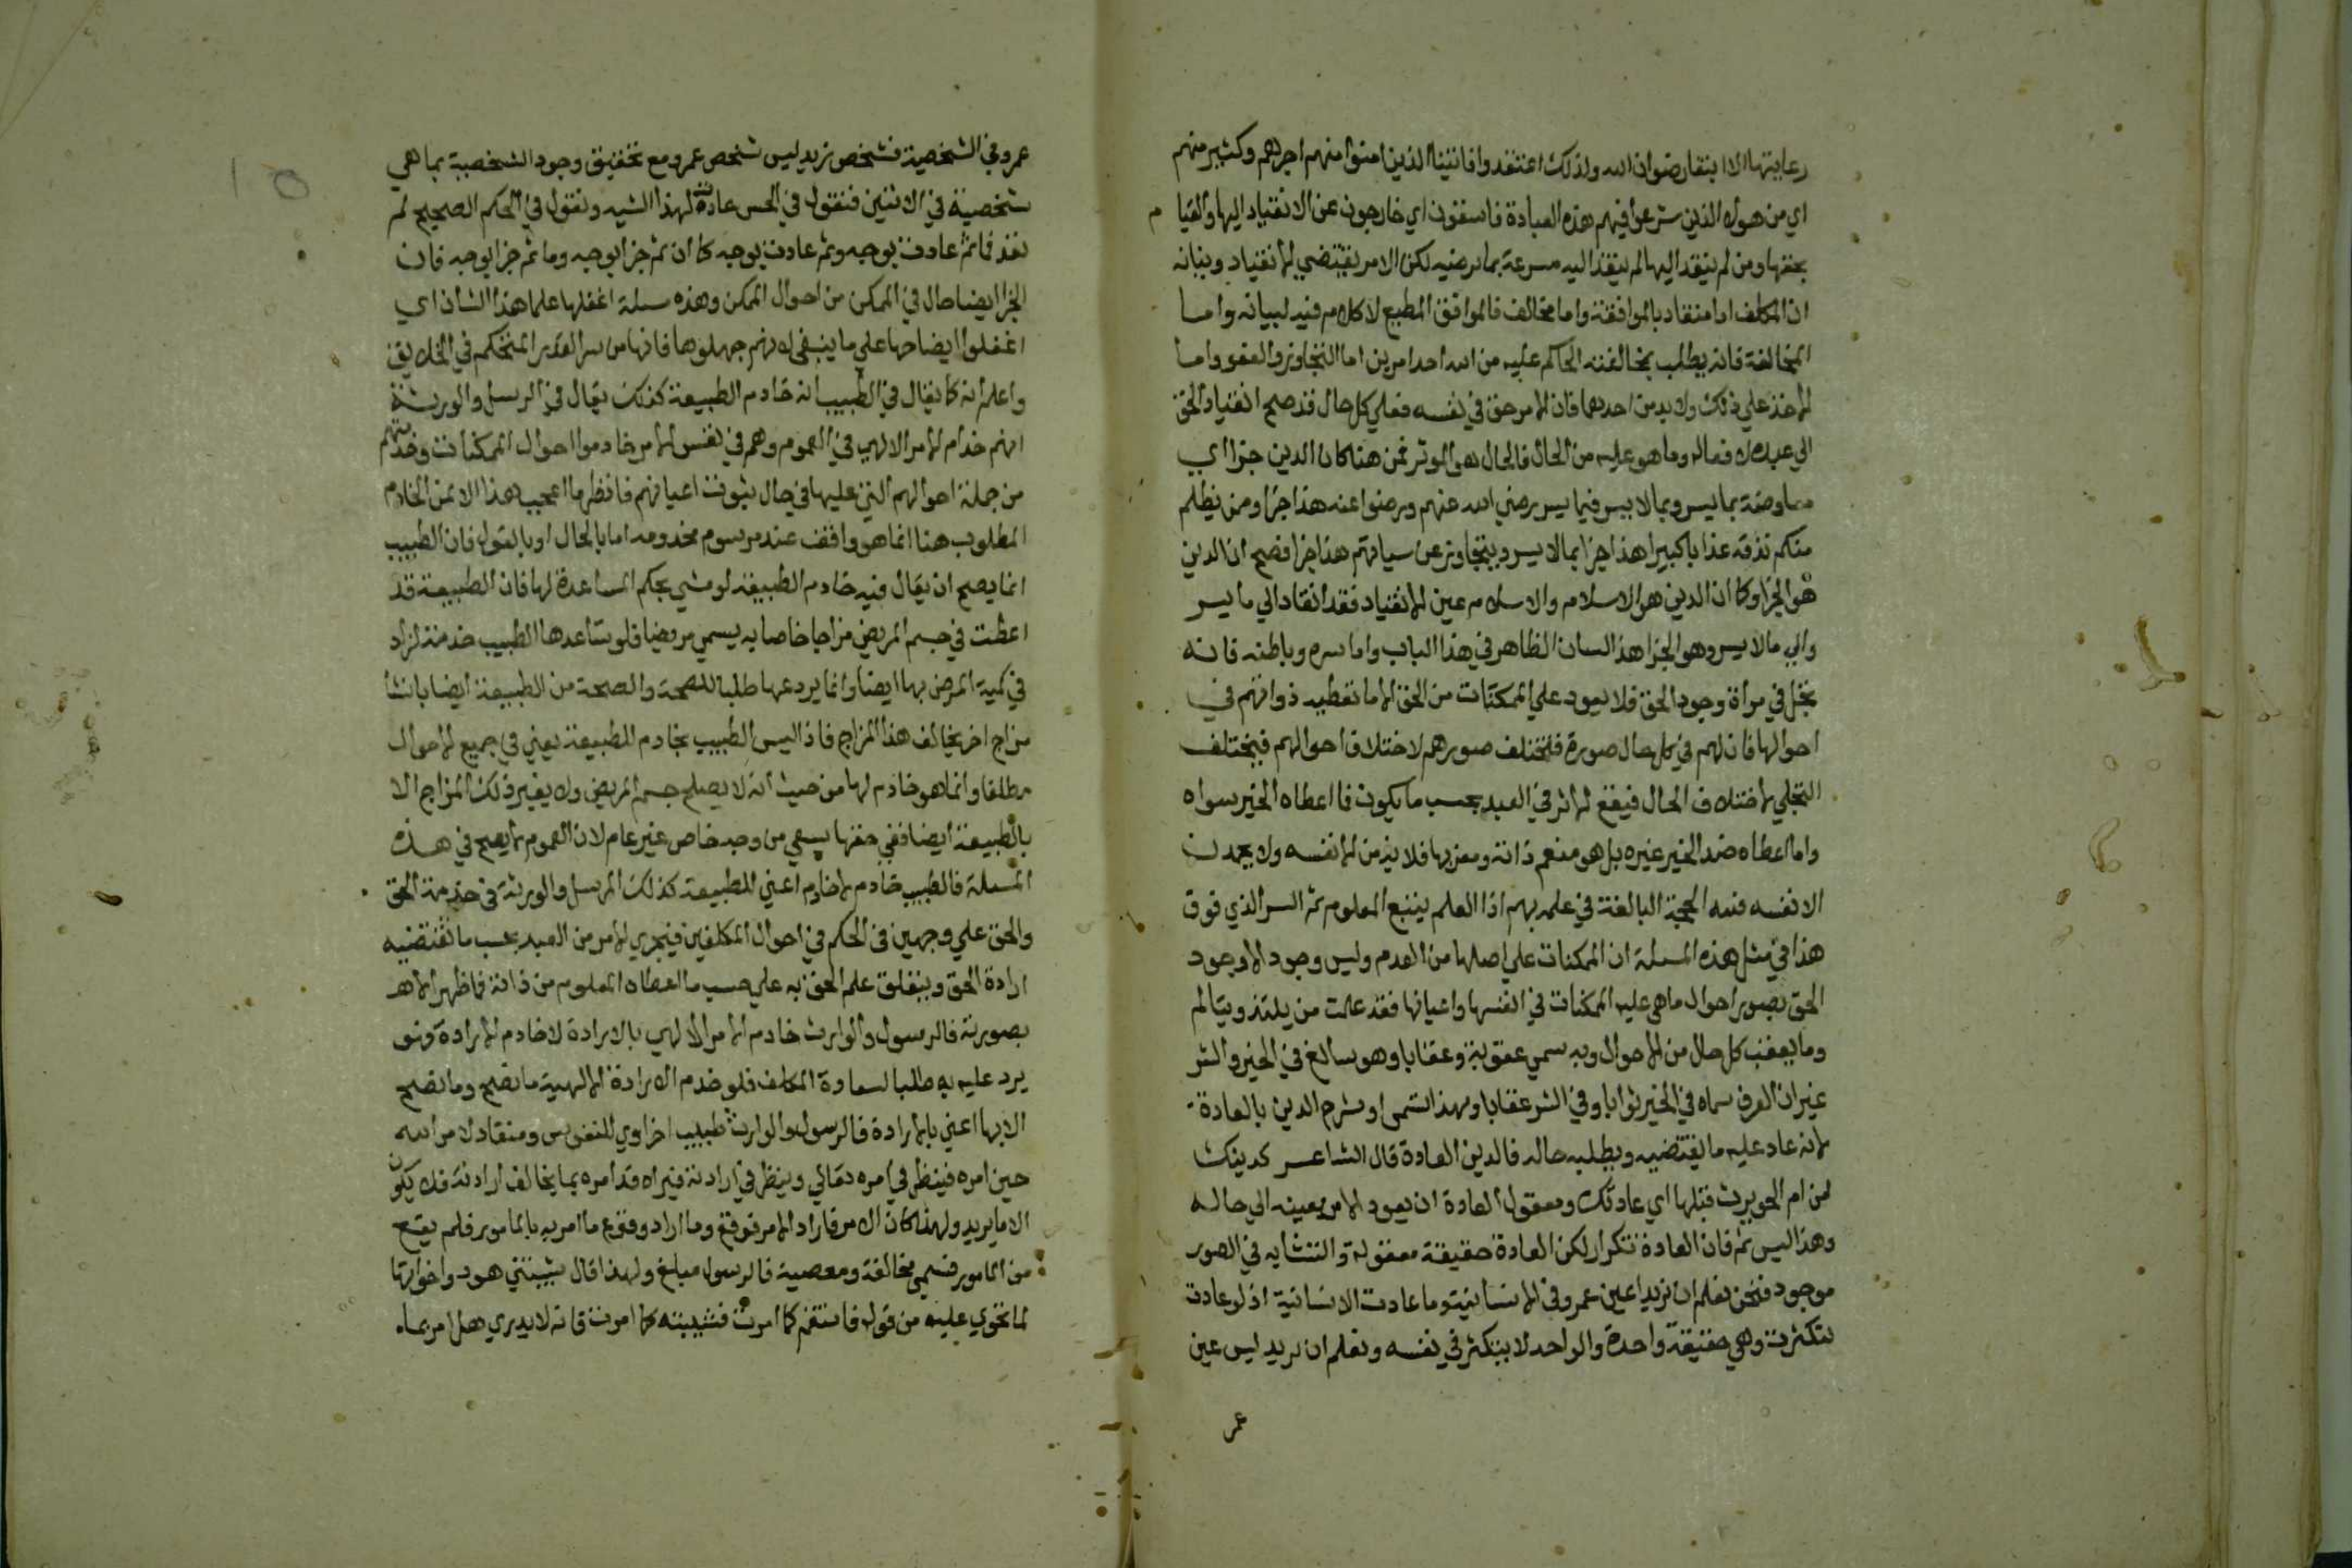 رعايتها الا ابتغا رضوان الله ولذلك اعتقدوا فاتينا الذين امنوا منهم اجرهم وكثير منهم
اي من هولاء الذين شرعوا فيهم هذه العبادة فاسقون اي خارجون عن الانقياد اليها والقيا م
بحقها ومن لم ينقد اليها لم ينقد اليه مسرعه بما يرضيه لكن الامر يقتضي الانقياد وبيانه
ان المكلف اما منقاد بالموافقة واما مخالف فالموافق المطيع لا كلام فيه لبيانه واما
المخالفة فانه يطلب بخالفته الحاكم عليه من الله احد امرين اما التجاوز والعفو واما
الاخذ على ذلك ولا بد من احدهما فان الامر حق في نفسه فعلي كل حال قد صح انقياد الحق
الي عبده لا فعاله وما هو عليه من الحال فالحال هو الموثر فمن هنا كان الدين جزا اي
معاوضة بما يسر وبما لا يسر فيما يسر رضي الله عنهم ورضوا عنه هذا جزا ومن يظلم
منكم نذقه عذابا كبيرا هذا جزا بما لا يسر ويتجاوز عن سياتهم هذا جزا فصح ان الدين
هو الجزا وكا ان الدين هو الاسلام والاسلام عين الانقياد فقد انقاد الي ما يسر
والي ما لا يسر وهو الجزا هذا لسان الظاهر في هذا الباب واما سره وباطنه فانه
تجل في مرأة وجود الحق فلا يعود علي الممكنات من الحق الا ما تعطيه ذواتهم في
احوالها فان لهم في كل حال صورة فتختلف صورهم لاختلاف احوالهم فيختلف
التجلي لاختلاف الحال فيقع الاثر في العبد بحسب ما يكون فا اعطاه الخير سواه
واما اعطاه ضد الخير غيره بل هو منعم ذاته ومعذبها فلا يذمن الا نفسه ولا يحمدن
الا نفسه فلله الحجة البالغة في علمه بهم اذا العلم يتبع المعلوم ثم السر الذي فوق
هذا في مثل هذه المسلة ان الممكنات علي اصلها من العدم وليس وجود الا وجود
الحق بصور احوال ما هي عليه الممكنات في انفسها واعيانها فقد علمت من يلتذ ويتالم
وما يعقب كل حال من الاحوال وبه سمي عقوبة وعقابا وهو سالغ في الخير والشر
غير ان العرف سماه في الخير ثوابا وفي الشر عقابا وبهذا سمي او شرح الدين بالعادة
لانه عاد عليه ما يقتضيه ويطلبه حاله فالدين العادة قال الشاعر كدينك
من ام الحويرث قبلها اي عادتك ومعقول العادة ان يعود الامر بعينه الي حاله
وهذا ليس ثم فان العادة تتكرار لكن العادة حقيقة معقولة والتشابه في الصور
موجود فنحن نعلم ان زيدا عين عمرو في الانسانية وما عادت الانسانية اذ لو عادت
لتكثرت وهي حقيقة واحدة والواحد لا يتكثر في نفسه ونعلم ان زيد ليس عين
عمر
عمرو في الشخصية فشخص زيد ليس شخص عمرو مع تحقيق وجود الشخصية بما هي
شخصية في الاثنين فنقول في الحس عادت لهذا الشبه ونقول في الحكم الصحيح لم
تعد فما ثم عادت بوجه وثم عادت بوجه كا ان ثم جزا بوجه وما ثم جزا بوجه فان
الجزا ايضا حال في الممكن من احوال الممكن وهذه مسلة اغفلها علما هذا الشان اي
اغفلوا ايضاحها علي ما ينبغي لا انهم جهلوها فانها من سر القدر المتحكم في الخلايق
واعلم انه كا يقال في الطبيب انه خادم الطبيعة كذلك يقال في الرسل والورثة
انهم خدام الامر الالهي في العموم وهم في نفس الامر خادموا احوال الممكنات وخدمتهم
من جملة احوالهم التي عليها في حال ثبوت اعيانهم فانظر ما اعجب هذا الا ان الخادم
المطلوب هنا انما هو واقف عند مرسوم مخدومه اما بالحال او بالقول فان الطبيب
انما يصح ان يقال فيه خادم الطبيعة لو مشي بحكم المساعدة لها فان الطبيعة قد
اعطت في جسم المريض مزاجا خاصا به يسمي مريضا فلو ساعدها الطبيب خدمة لزاد
في كمية المرض بها ايضا وانما يردعها طلبا للصحة والصحة من الطبيعة ايضا بانشا
مزاج اخر يخالف هذا المزاج فاذا ليس الطبيب بخادم للطبيعة يعني في جميع الاحوال
مطلقا وانما هو خادم لها من حيث انه لا يصلح جسم المريض ولا يغير ذلك المزاج الا
بالطبيعة ايضا ففي حقها يسعي من وجه خاص غير عام لان العموم لا يصح في هذه
المسلة فالطبيب خادم لا خادم اعني للطبيعة كذلك الرسل والورثة في خدمة الحق
والحق علي وجهين في الحكم في احوال المكلفين فيجري الامر من العبد بحسب ما تقتضيه
ارادة الحق ويتعلق علم الحق به علي حسب ما اعطاه المعلوم من ذاته فما ظهر الا هـ
بصورته فالرسول والوارث خادم الامر الالهي بالارادة لا خادم الارادة فهو
يرد عليه به طلبا لسعادة المكلف فلو خدم الارادة الالهية ما نصح وما نصح
الا بها اعني بالارادة فالرسول والوارث طبيب اخراوي للنفوس ومنقاد لامر الله
حين امره فينظر في امره تعالي وينظر في ارادته فيراه قد امره بما يخالف ارادته فلا يكون
الا ما يريد ولهذا كان الامر فاراد الامر فوقع وما اراد وقوع ما امر به بالمامور فلم يقع
من المامور فسمي مخالفة ومعصية فالرسول مبلغ ولهذا قال شيبتني هود واخواتها
لما تحوي عليه من قوله فاستقم كما امرت فشيبته كما امرت فانه لا يدري هل امر بما